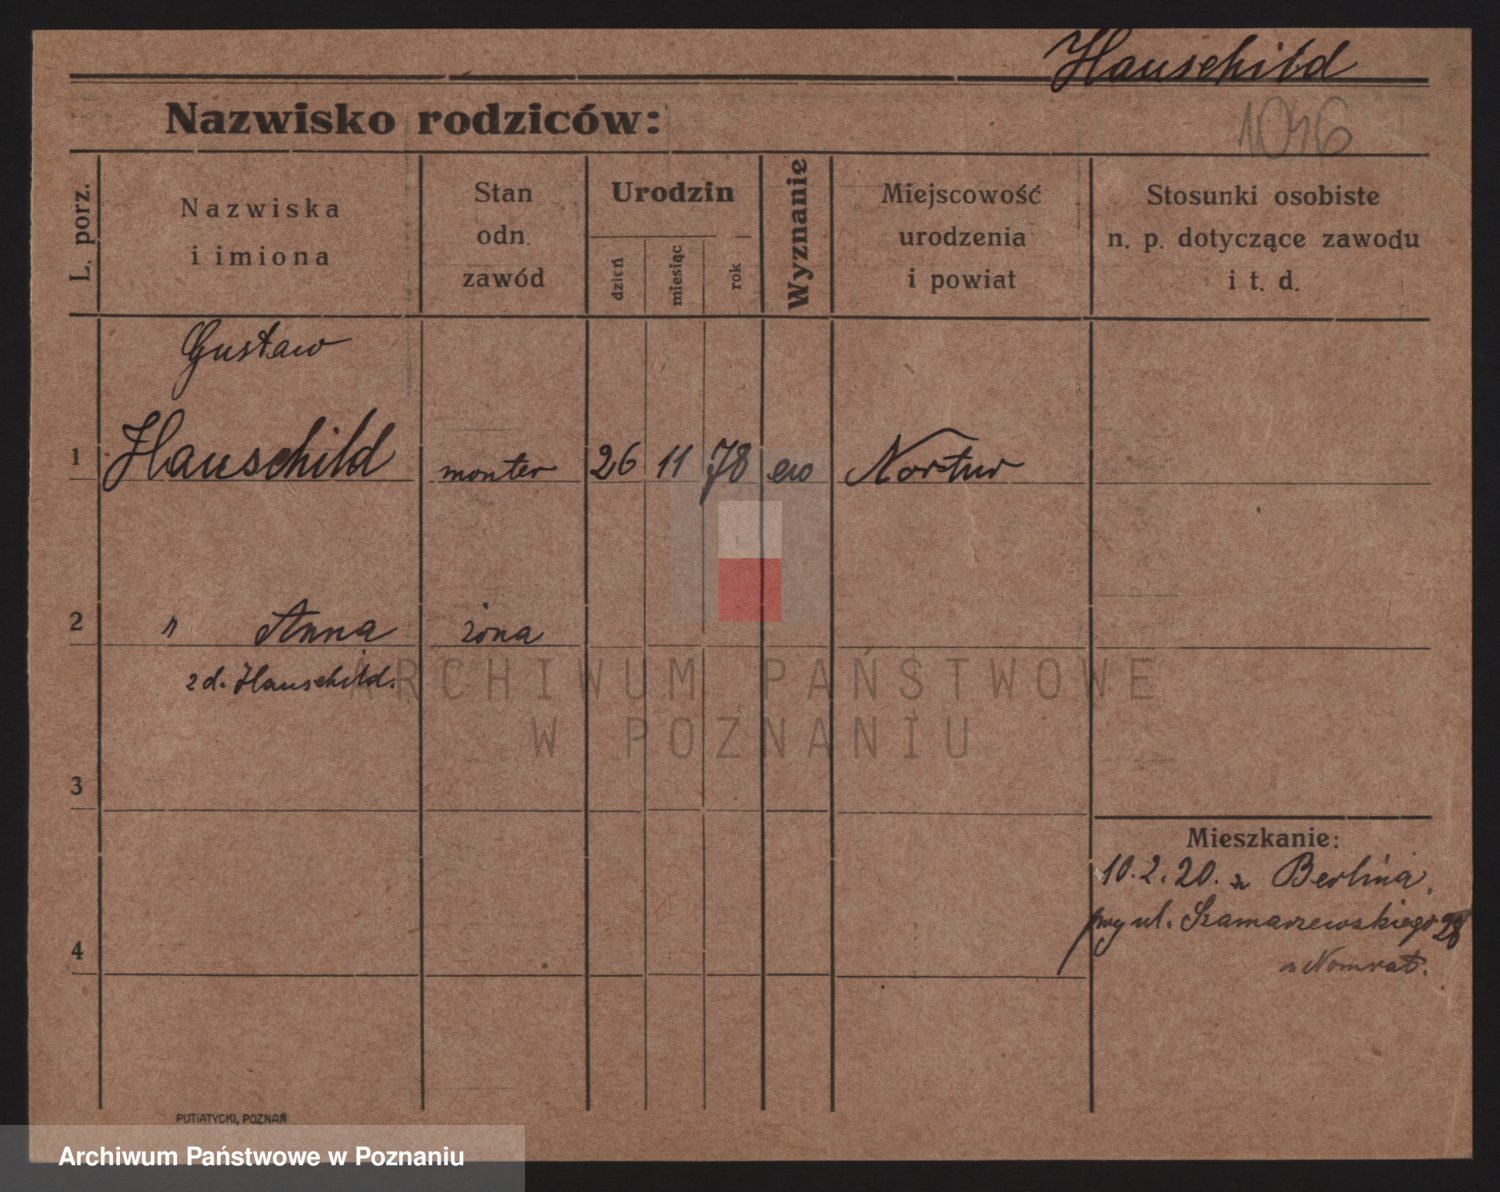 Hauschild
1046
Nazwisko rodziców:
L. porz.
Nazwiska
i imiona
Stan
odn.
zawód
Urodzin
dzień
miesiąc
rok
Wyznanie
Miejscowość
urodzenia
i powiat
Stosunki osobiste
n. p. dotyczące zawodu
i t. d.
Gustaw
1 Hauschild monter 26 11 78 ew
2 " Anna żona
zd. Hauschild.
3
Mieszkanie:
10.2.20. z Berlina,
przy ul. Szamarzewskiego 28
4
ARCHIWUM PAŃSTWOWE
W POZNANIU
PUTIATYCKI, POZNAŃ
Archiwum Państwowe w Poznaniu